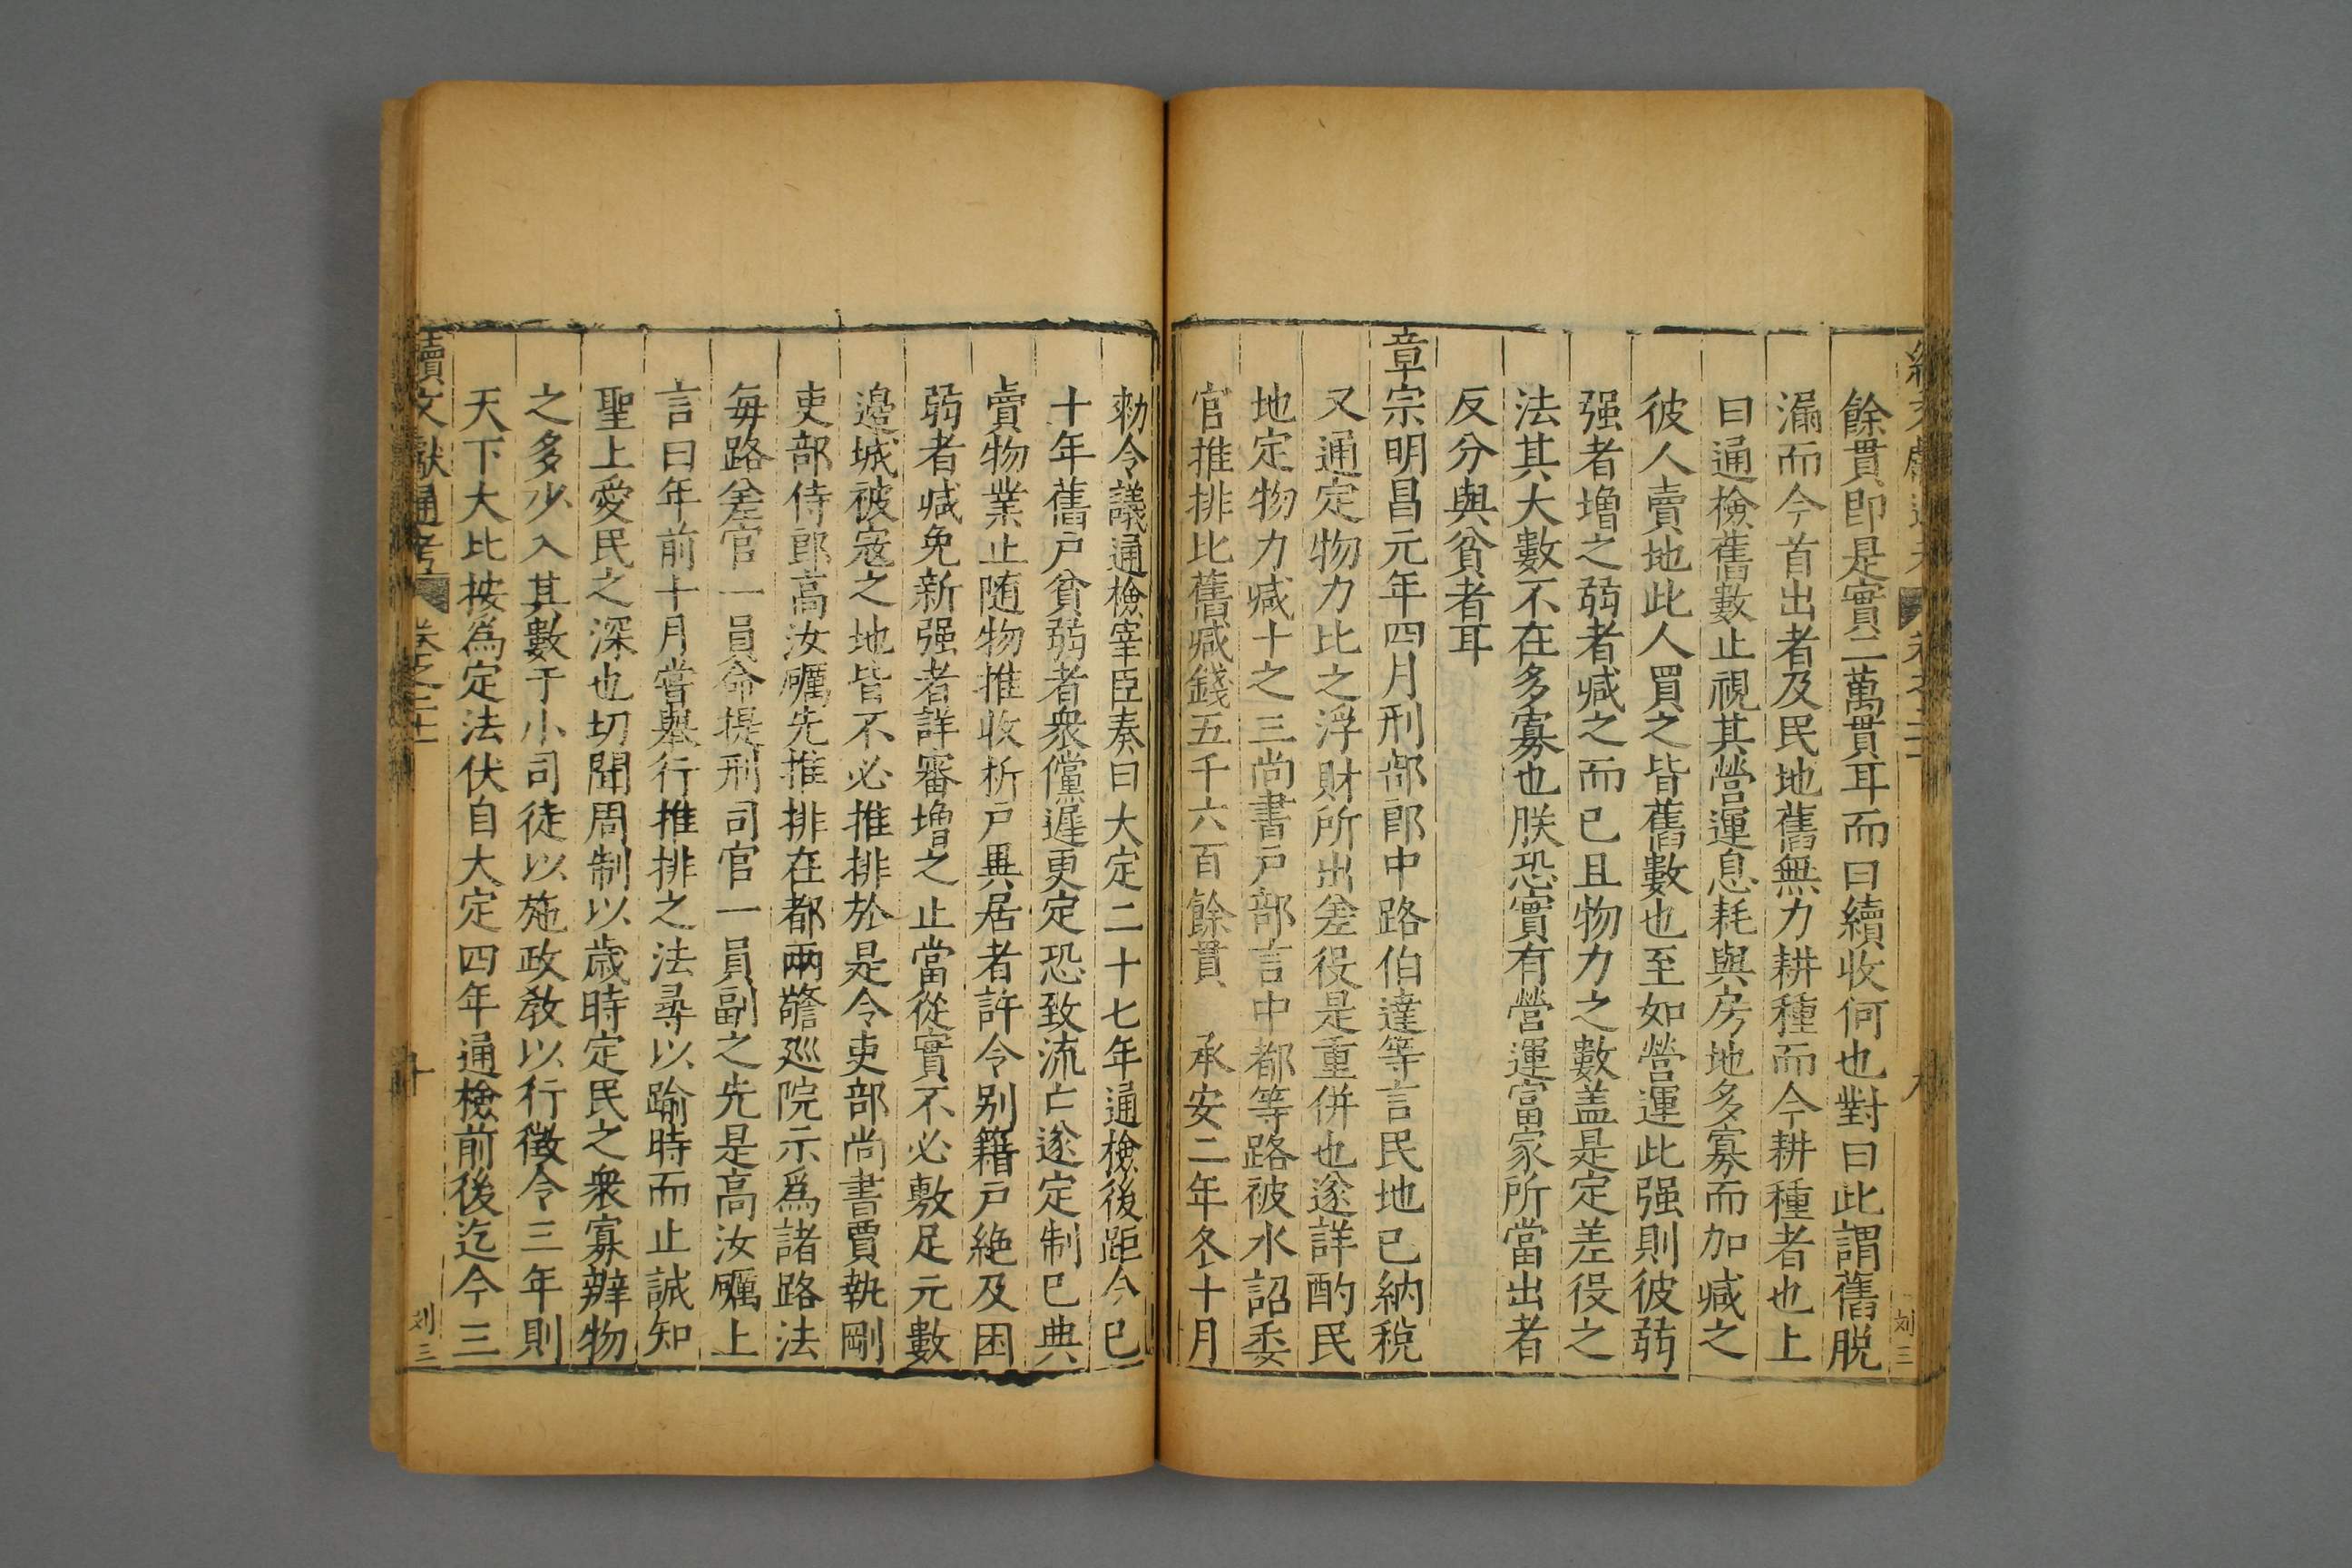 餘貫即是實二萬貫耳而曰續收何也對曰此謂舊脱
漏而今首出者及民地舊無力耕種而今耕種者也上
曰通檢舊數止視其營運息耗與房地多寡而加减之
彼人賣地此人買之皆舊數也至如營運此强則彼弱
强者增之弱者减之而已且物力之數盖是定差役之
法其大數不在多寡也朕恐實有營運富家所當出者
反分與貧者耳
章宗明昌元年四月刑部郎中路伯達等言民地已納稅
又通定物力比之浮財所出差役是重併也遂詳酌民
地定物力减十之三尚書戸部言中都等路被水詔委
官推排比舊减錢五千六百餘貫 承安二年冬十月
勑令議通檢宰臣奏曰大定二十七年通檢後距今已
十年舊戸貧弱者衆儻遲更定恐致流亡遂定制已典
賣物業止随物推收析戸異居者許令别籍戸絶及困
弱者减免新强者詳審增之止當從實不必敷足元數
邉城被寇之地皆不必推排於是令吏部尚書賈執剛
吏部侍郎高汝礪先推排在都兩警廵院示爲諸路法
每路差官一員命提刑司官一員副之先是高汝礪上
言曰年前十月嘗舉行推排之法尋以踰時而止誠知
聖上愛民之深也切聞周制以歲時定民之衆寡辨物
之多少入其數于小司徒以施政敎以行徵令三年則
天下大比按爲定法伏自大定四年通檢前後迄今三
續文獻通考 卷之二十 十 刘三